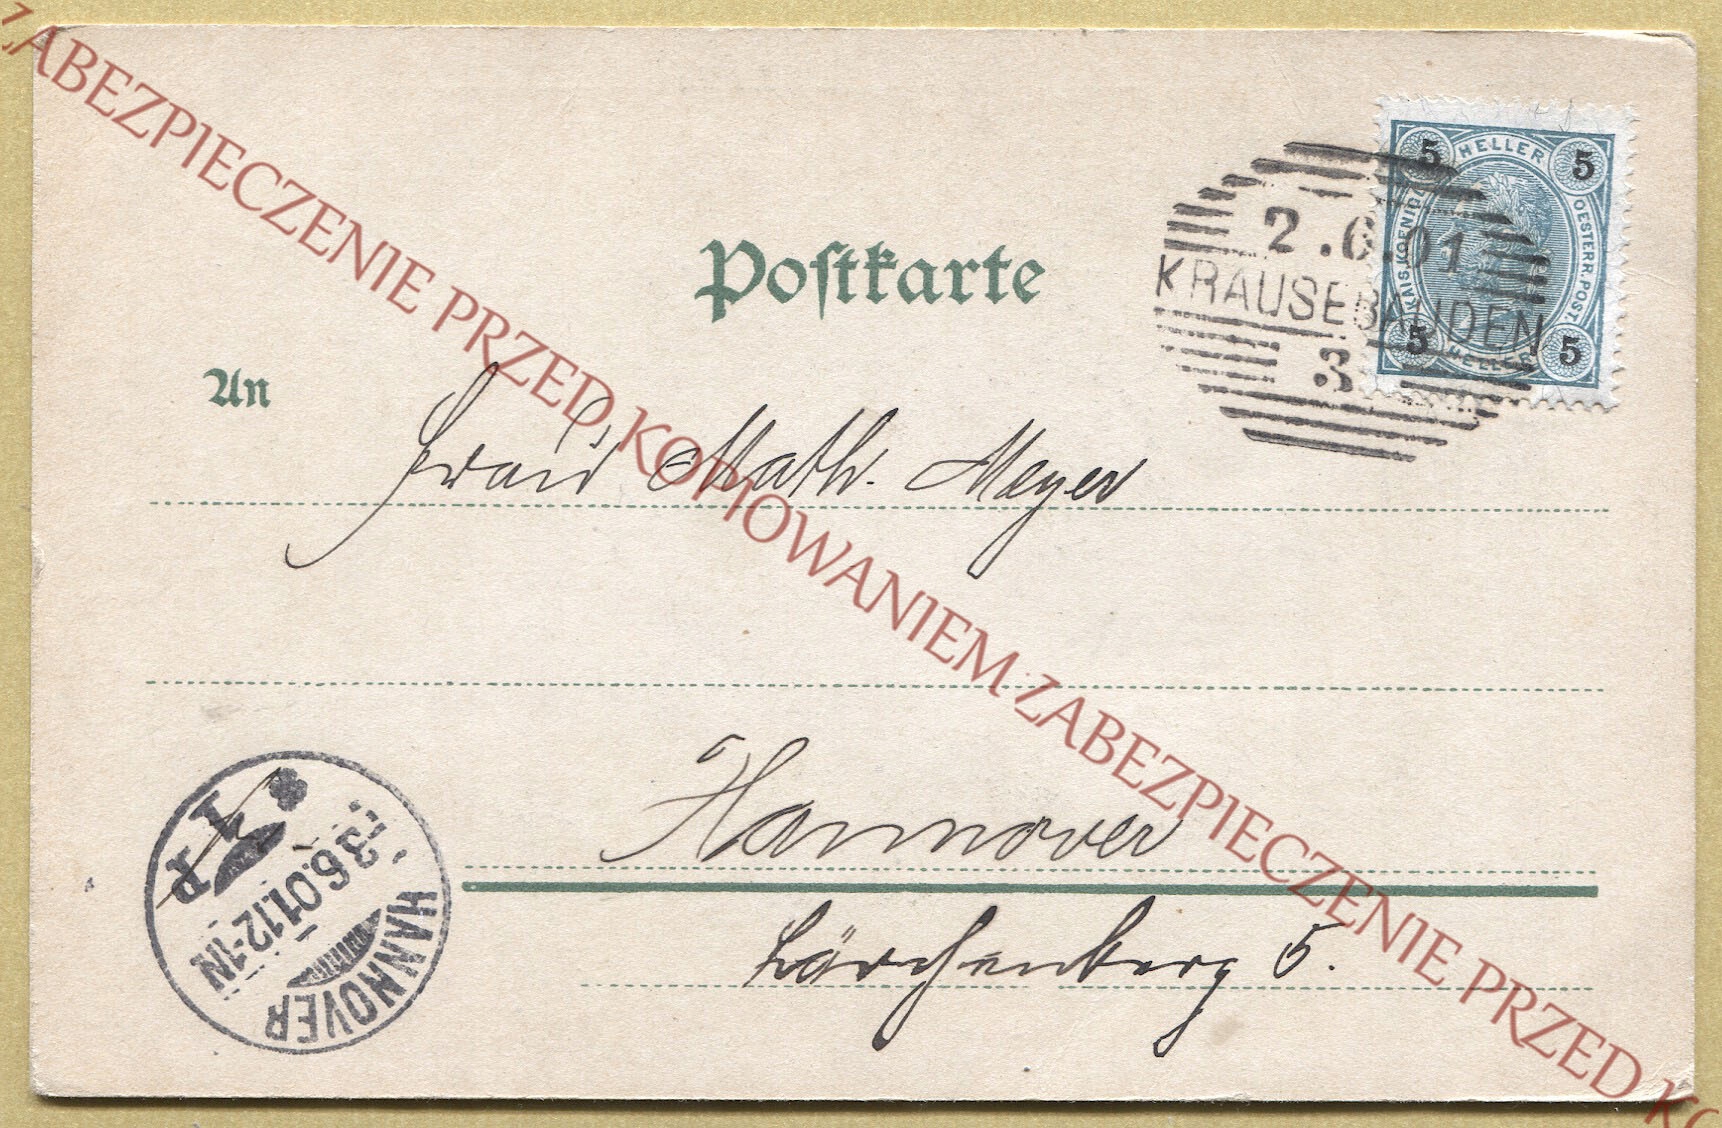 ZABEZPIECZENIE PRZED KOPIOWANIEM ZABEZPIECZENIE PRZED KO
5 HELLER 5
KAIS. KOENIGL. OESTERR. POST.
5 HELLER 5
2.6.01
KRAUSEBAUDEN
3
Postkarte
An
Frau Math. Meyer
Hannover
Lärchenberg 5.
HANNOVER
3.6.01.12-1N
1 P